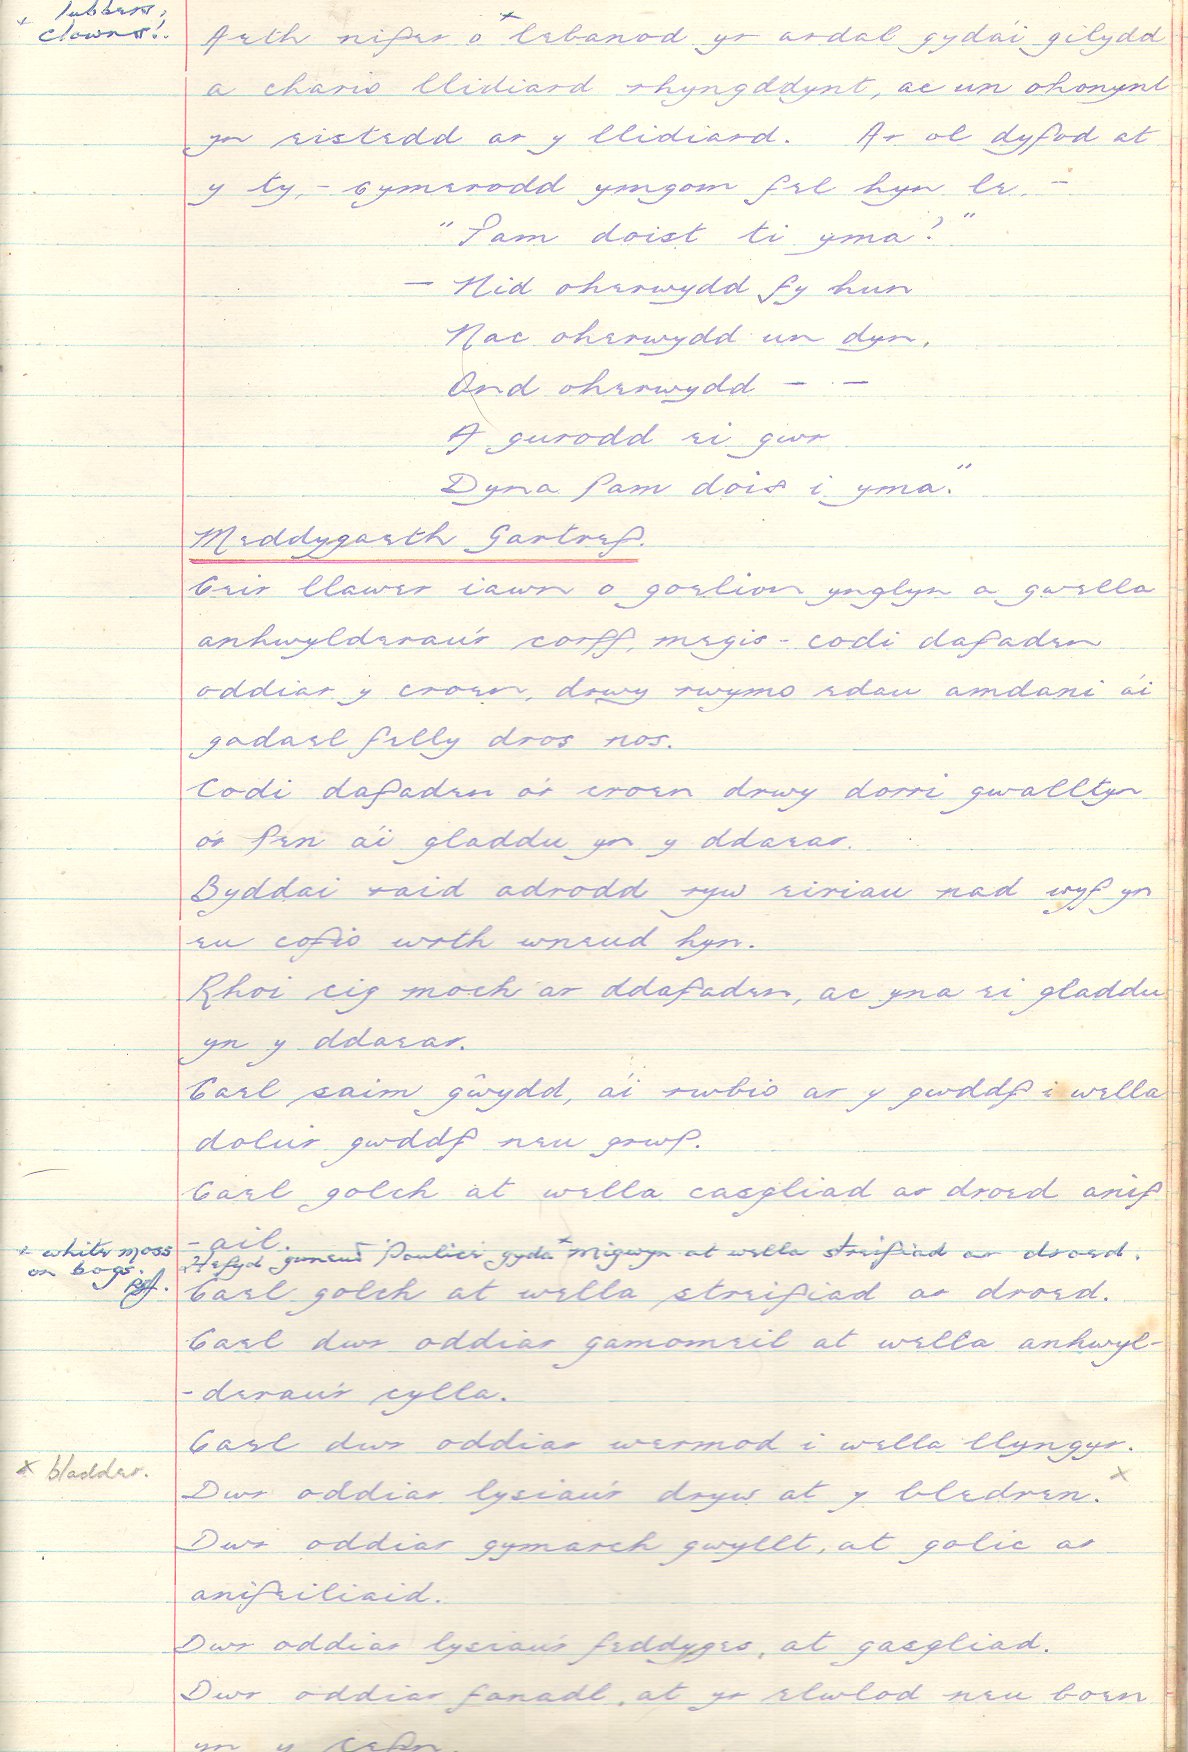 lubbers,
x clowns!.
Aeth nifer o x lebanod yr ardal gyda'i gilydd
a chario llidiard rhyngddynt, ac un ohonynt
yn eistedd ar y llidiard. Ar ol dyfod at
y ty, - cymerodd ymgom fel hyn le. -
"Pam doist ti yma?"
- Nid oherwydd fy hun
Nac oherwydd un dyn,
Ond oherwydd - -
A gurodd ei gwr
Dyna pam dois i yma."
Meddygaeth Gartref.
Ceir llawer iawn o goelion ynglyn a gwella
anhwylderau'r corff, megis - codi dafaden
oddiar y croen, drwy rwymo edau amdani a'i
gadael felly dros nos.
Codi dafaden o'r croen drwy dorri gwalltyn
o'r pen a'i gladdu yn y ddaear.
Byddai raid adrodd ryw eiriau nad wyf yn
eu cofio wrth wneud hyn.
Rhoi cig moch ar ddafaden, ac yna ei gladdu
yn y ddaear.
Cael saim gŵydd, a'i rwbio ar y gwddf i wella
dolur gwddf neu grwf.
Cael golch at wella casgliad ar droed anif
-ail.
x white moss
on bogs.
Hefyd gwneud poulice gyda x migwyn at wella streifiad ar droed.
Cael golch at wella streifiad ar droed.
Cael dwr oddiar gamomeil at wella anhwyl-
-derau'r cylla.
Cael dwr oddiar wermod i wella llyngyr.
x bladder.
Dwr oddiar lysiau'r dryw at y bledren. x
Dwr oddiar gymarch gwyllt, at golic ar
anifeiliaid.
Dwr oddiar lysiau'r feddyges, at gasgliad.
Dwr oddiar fanadl, at yr elwlod neu boen
yn y cefn.